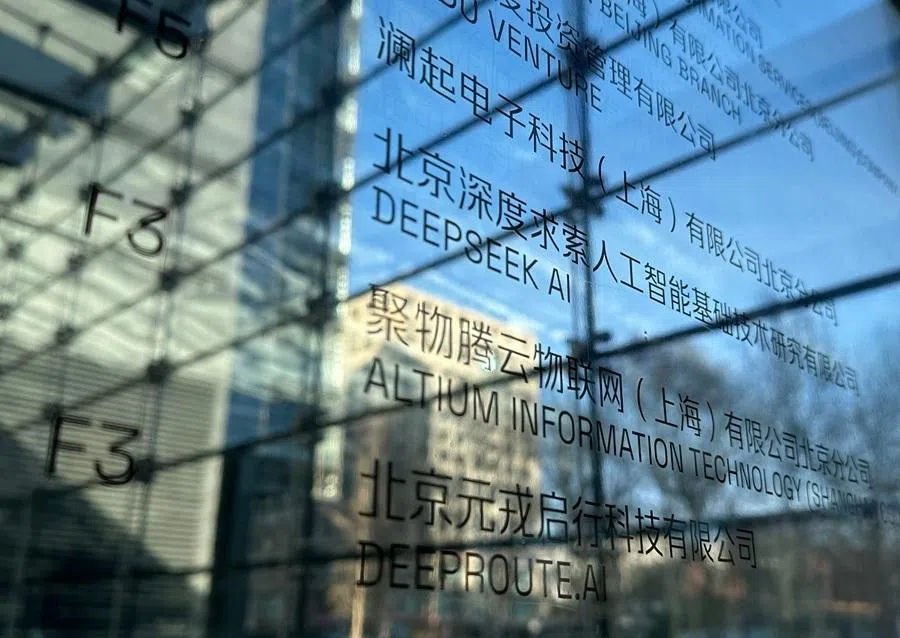 F5
度投资管理有限公司
VENTURE
有限公司北京分公司
BEIJING BRANCH
澜起电子科技（上海）有限公司北京分公司
F3
北京深度求索人工智能基础技术研究有限公司
DEEPSEEK AI
聚物腾云物联网（上海）有限公司北京分公司
ALTIUM INFORMATION TECHNOLOGY
F3
北京元戎启行科技有限公司
DEEPROUTE.AI